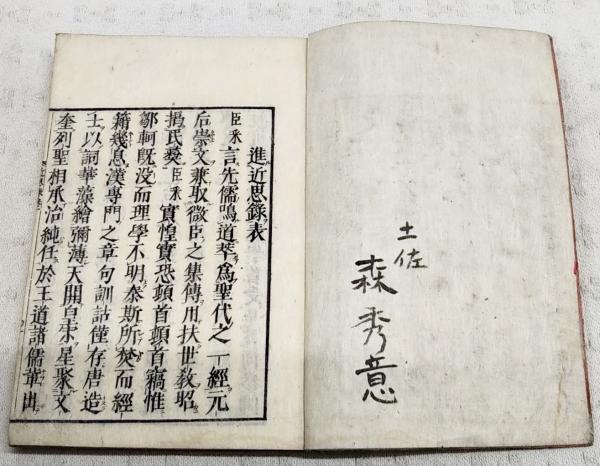 土佐
森秀意
進近思錄表
臣采言先儒鳴道萃爲聖代之一經元
后崇文兼取微臣之集傳用扶世敎昭
揭民彝臣采實惶實恐頓首頓首竊惟
鄒軻旣没而理學不明秦斯所焚而經
籍幾息漢專門之章句訓詁僅存唐造
士以詞華藻繪彌薄天開皇宋星聚文
奎列聖相承治純任於王道諸儒輩出